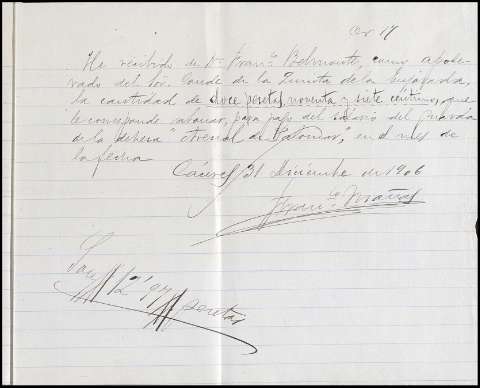 Nº 17
He recibido de Dn. Franco. Belmonte, como apode-
rado del Sor. Conde de la Quinta de la Enjarada,
la cantidad de doce pesetas, noventa y siete céntimos, que
le corresponde abonar, para pago del salario del guarda
de la dehesa "Arenal de Palomar", en el mes de
la fecha.
Cáceres 31 Diciembre de 1906
Son 12'97 pesetas